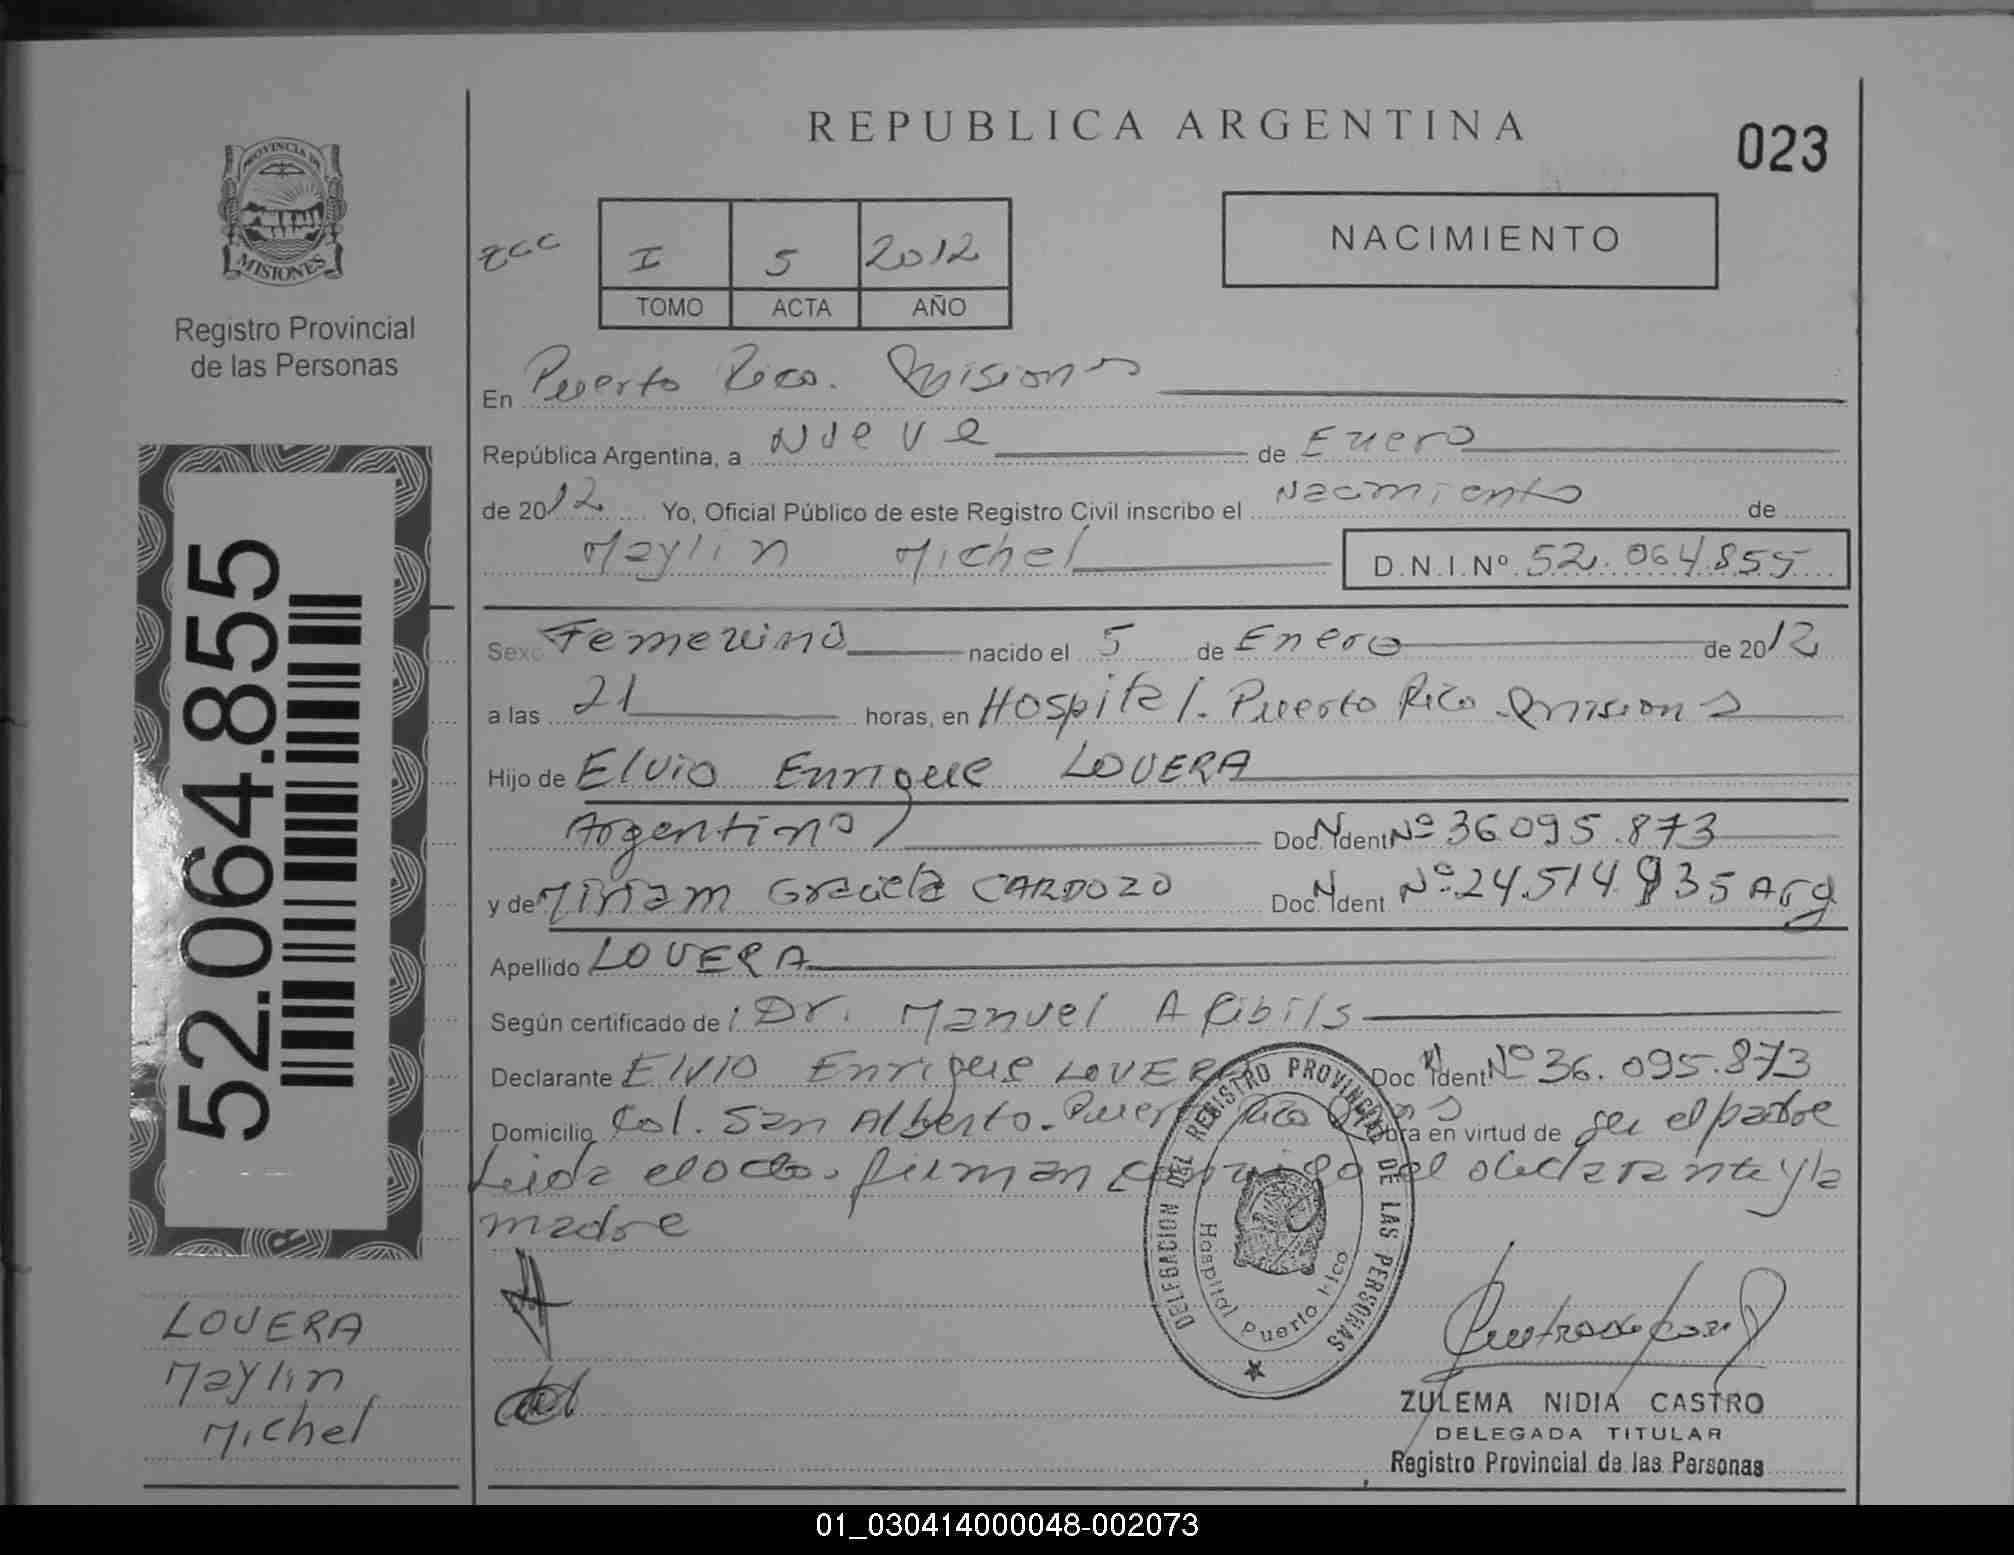 REPUBLICA ARGENTINA
023
PROVINCIA DE
MISIONES
Registro Provincial
de las Personas
I 5 2012
TOMO ACTA AÑO
NACIMIENTO
En Puerto Rico. Misiones
República Argentina, a Nueve de Enero
de 2012 Yo, Oficial Público de este Registro Civil inscribo el Nacimiento de
Maylin Michel D.N.I.Nº 52.064.855
52.064.855
Sexo Femenino nacido el 5 de Enero de 2012
a las 21 horas, en Hospital. Puerto Rico Misiones
Hijo de Elvio Enrique LOVERA
Argentino Doc. N Ident Nº 36.095.873
y de Miriam Graciela CARDOZO Doc. N Ident Nº 24.514.935 Arg
Apellido LOVERA
Según certificado de Dr. Manuel A Ribils
Declarante Elvio Enrique LOVERA Doc N Ident Nº 36.095.873
Domicilio Col. San Alberto - Puerto Rico Obra en virtud de ser el padre
Leida el acta. firman conmigo el declarante y la
madre
DELEGACION DEL REGISTRO PROVINCIAL DE LAS PERSONAS
Hospital Puerto Rico
LOVERA
Maylin
Michel
ZULEMA NIDIA CASTRO
DELEGADA TITULAR
Registro Provincial de las Personas
01_030414000048-002073